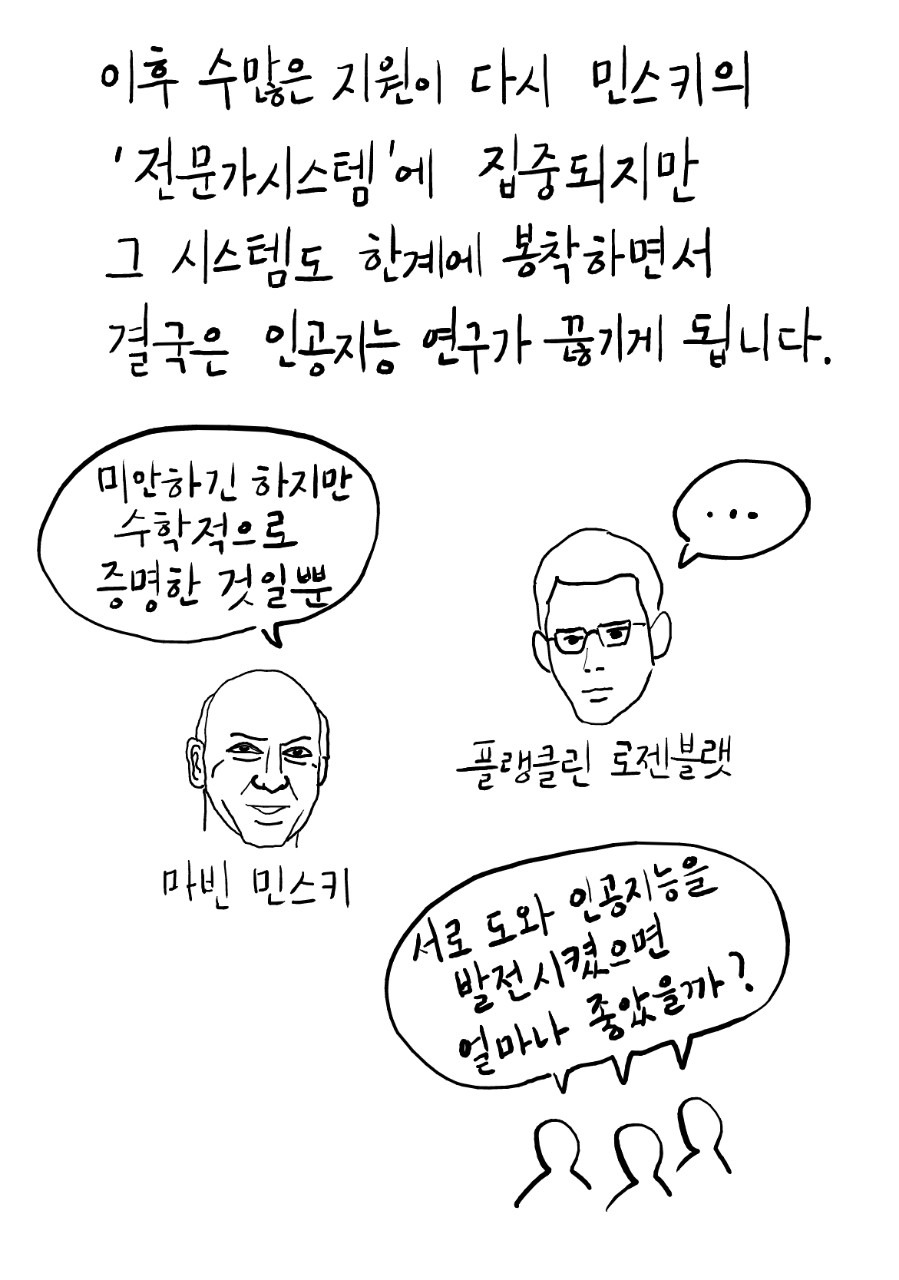 이후 수많은 지원이 다시 민스키의
'전문가시스템'에 집중되지만
그 시스템도 한계에 봉착하면서
결국은 인공지능 연구가 끊기게 됩니다.
미안하긴 하지만
수학적으로
증명한 것일뿐
...
플랭클린 로젠블랫
마빈 민스키
서로 도와 인공지능을
발전시켰으면
얼마나 좋았을까?